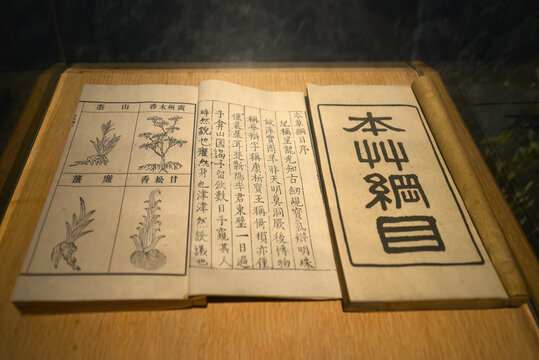 本艸綱目
本草綱目序
紀稱望龍光知古劍覘寶氣辨明珠
故萍實商羊非天明莫洞厥後博物
稱華辨字稱康析寶玉稱倚頓亦僅
僅晨星耳楚蘄陽李君東璧一日過
予弇山園謁予留飲數日予窺其人
睟然貌也癯然身也津津然談議也
廣州木香
山柰
甘松香
廉薑